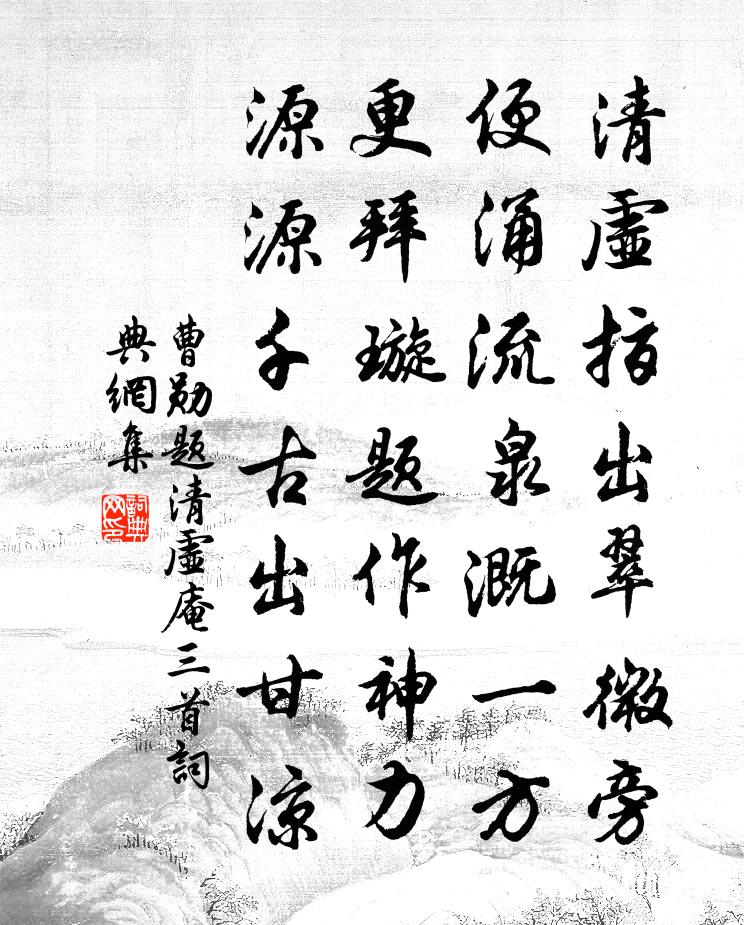 清虛指出翠微旁
便涌流泉溉一方
更拜璇題作神力
源源千古出甘凉
曹勛題清虛庵三首詞
典網集
詞典
网印